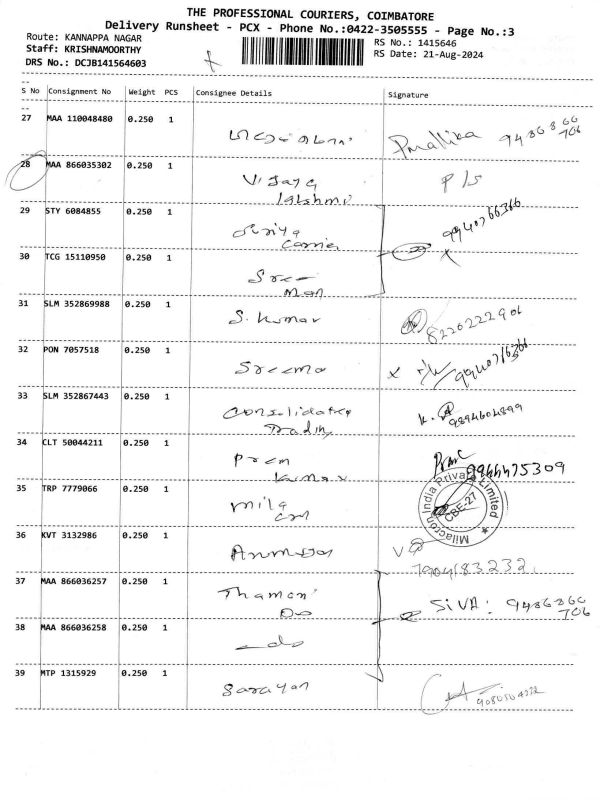 THE PROFESSIONAL COURIERS, COIMBATORE
Delivery Runsheet - PCX - Phone No.:0422-3505555 - Page No.:3
Route: KANNAPPA NAGAR
RS No.: 1415646
Staff: KRISHNAMOORTHY
RS Date: 21-Aug-2024
DRS No.: DCJB141564603
S No Consignment No Weight PCS Consignee Details Signature
27 MAA 110048480 0.250 1
Pmallika 9486866
706
28 MAA 866035302 0.250 1 Vijaya
lakshmi
P/S
29 STY 6084855 0.250 1
Carrier
9940766366
30 TCG 15110950 0.250 1 Sree
man
X
31 SLM 352869988 0.250 1 S. Kumar 8220222906
32 PON 7057518 0.250 1 Sreema X 9940766366
33 SLM 352867443 0.250 1 Consolidated
Trading
K. 9894604899
34 CLT 50044211 0.250 1 Prem
Kumar
9944475309
35 TRP 7779066 0.250 1 Mila
crn
Milacron India Private Limited
CBE-27
36 KVT 3132986 0.250 1
7904183232
37 MAA 866036257 0.250 1 Thamani
SIVA: 9486866
706
38 MAA 866036258 0.250 1 -do
39 MTP 1315929 0.250 1 Saravan 9080504222